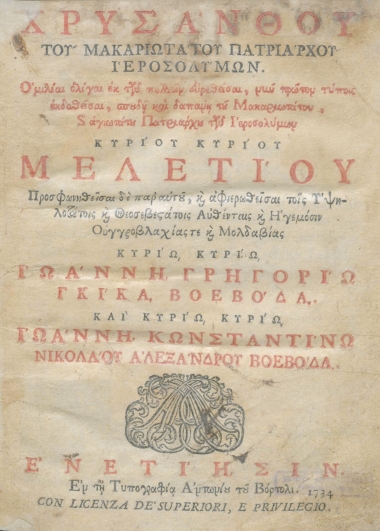 ΧΡΥΣΑΝΘΟΥ
ΤΟΥ ΜΑΚΑΡΙΩΤΑΤΟΥ ΠΑΤΡΙΑΡΧΟΥ
ἹΕΡΟΣΟΛΥΜΩΝ.
Ὁμιλίαι ὀλίγαι ἐκ τῶν πολλῶν εὑρεθεῖσαι, νῦν πρῶτον τύποις
ἐκδοθεῖσαι, σπουδῇ καὶ δαπάνῃ τοῦ Μακαριωτάτου,
ϗ ἁγιωτάτου Πατριάρχου τῶν Ἱεροσολύμων
ΚΥΡΙΟΥ ΚΥΡΙΟΥ
ΜΕΛΕΤΙΟΥ
Προσφωνηθεῖσαι δὲ παρ' αὐτοῦ, ϗ ἀφιερωθεῖσαι τοῖς Ὑψη-
λοτάτοις ϗ Θεοσεβεστάτοις Αὐθένταις ϗ Ἡγεμόσιν
Οὐγγροβλαχίας τε ϗ Μολδαβίας
ΚΥΡΙΩ, ΚΥΡΙΩ,
ἸΩΑΝΝΗ, ΓΡΗΓΟΡΙΩ
ΓΚΙΚΑ, ΒΟΕΒΟΔΑ,
ΚΑΙ ΚΥΡΙΩ, ΚΥΡΙΩ,
ἸΩΑΝΝΗ, ΚΩΝΣΤΑΝΤΙΝΩ
ΝΙΚΟΛΑΟΥ ἈΛΕΞΑΝΔΡΟΥ ΒΟΕΒΟΔΑ.
ἘΝΕΤΙΗΣΙΝ.
Ἐν τῇ Τυπογραφίᾳ Ἀντωνίου τοῦ Βόρτολι. 1734
CON LICENZA DE' SUPERIORI, E PRIVILEGIO.